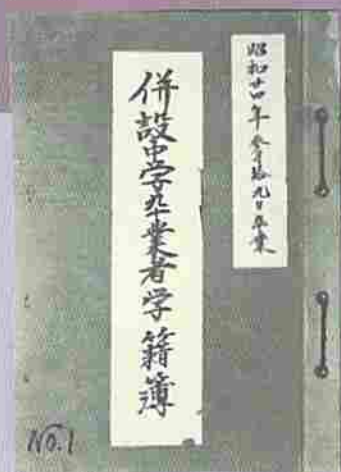 昭和廿四年参月拾九日卒業
併設中学卒業者学籍簿
No.1